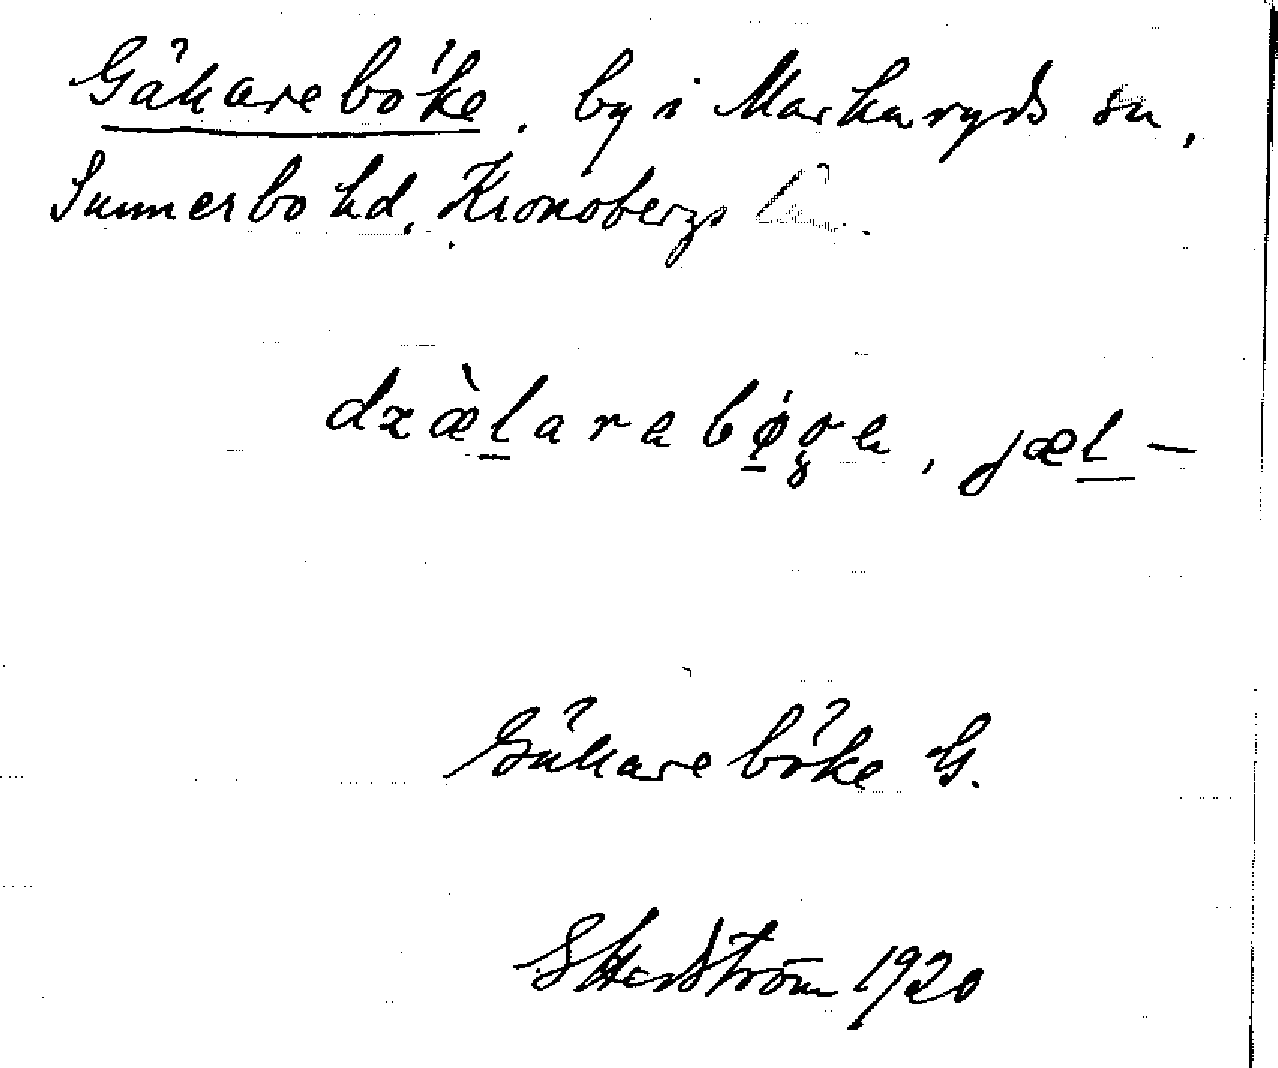 Gäkareböke, by i Markaryds sn,
Sunnerbo hd, Kronobergs län.
dzæ̀larabøga, jæl—
Gäkareböke G.
Hedström 1920